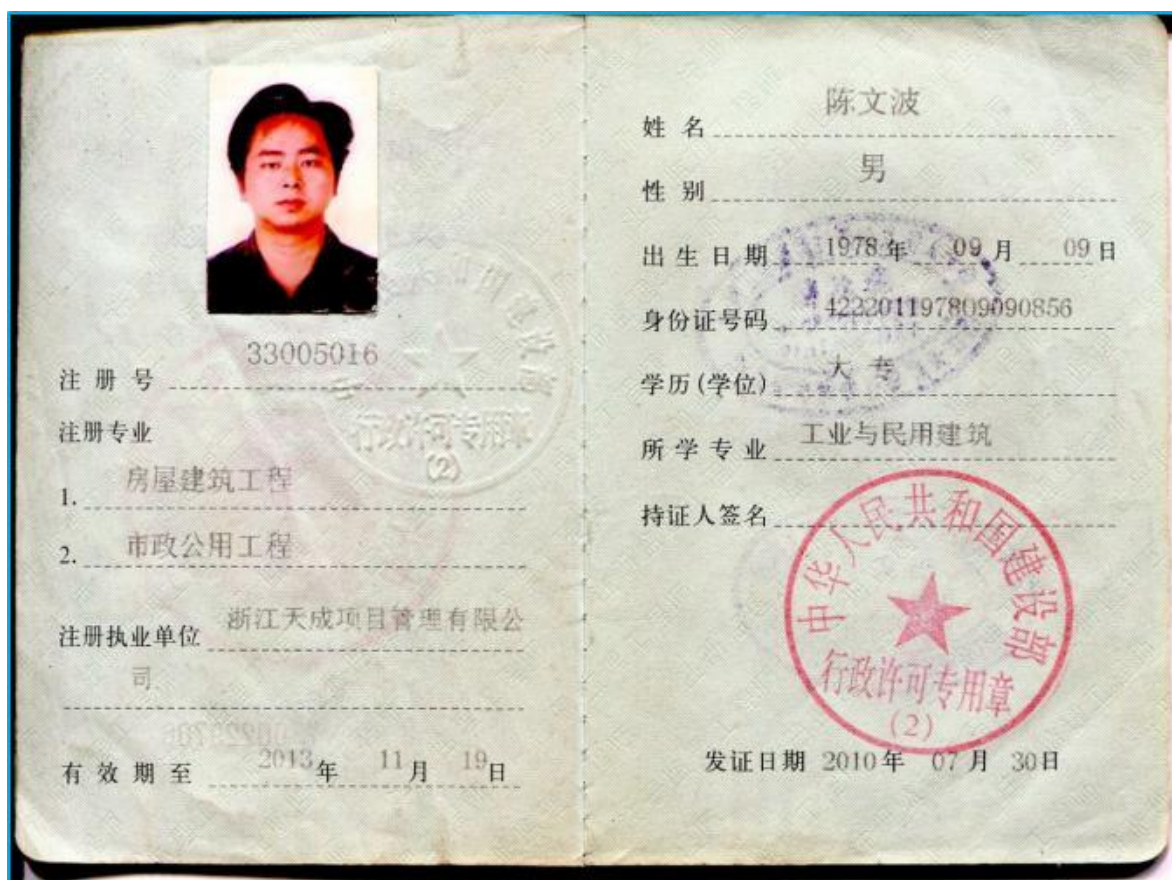 注 册 号 33005016
注册专业
1. 房屋建筑工程
2. 市政公用工程
注册执业单位 浙江天成项目管理有限公
司
有 效 期 至 2013年 11月 19日
行政许可专用章
(2)
姓 名 陈文波
性 别 男
出 生 日 期 1978年 09月 09日
身份证号码 422201197809090856
学历(学位) 大 专
所 学 专 业 工业与民用建筑
持证人签名
中华人民共和国建设部
行政许可专用章
(2)
发证日期 2010年 07月 30日